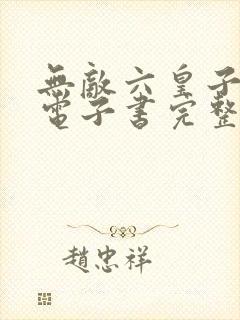 無敵六皇子
電子書完整
趙忠祥